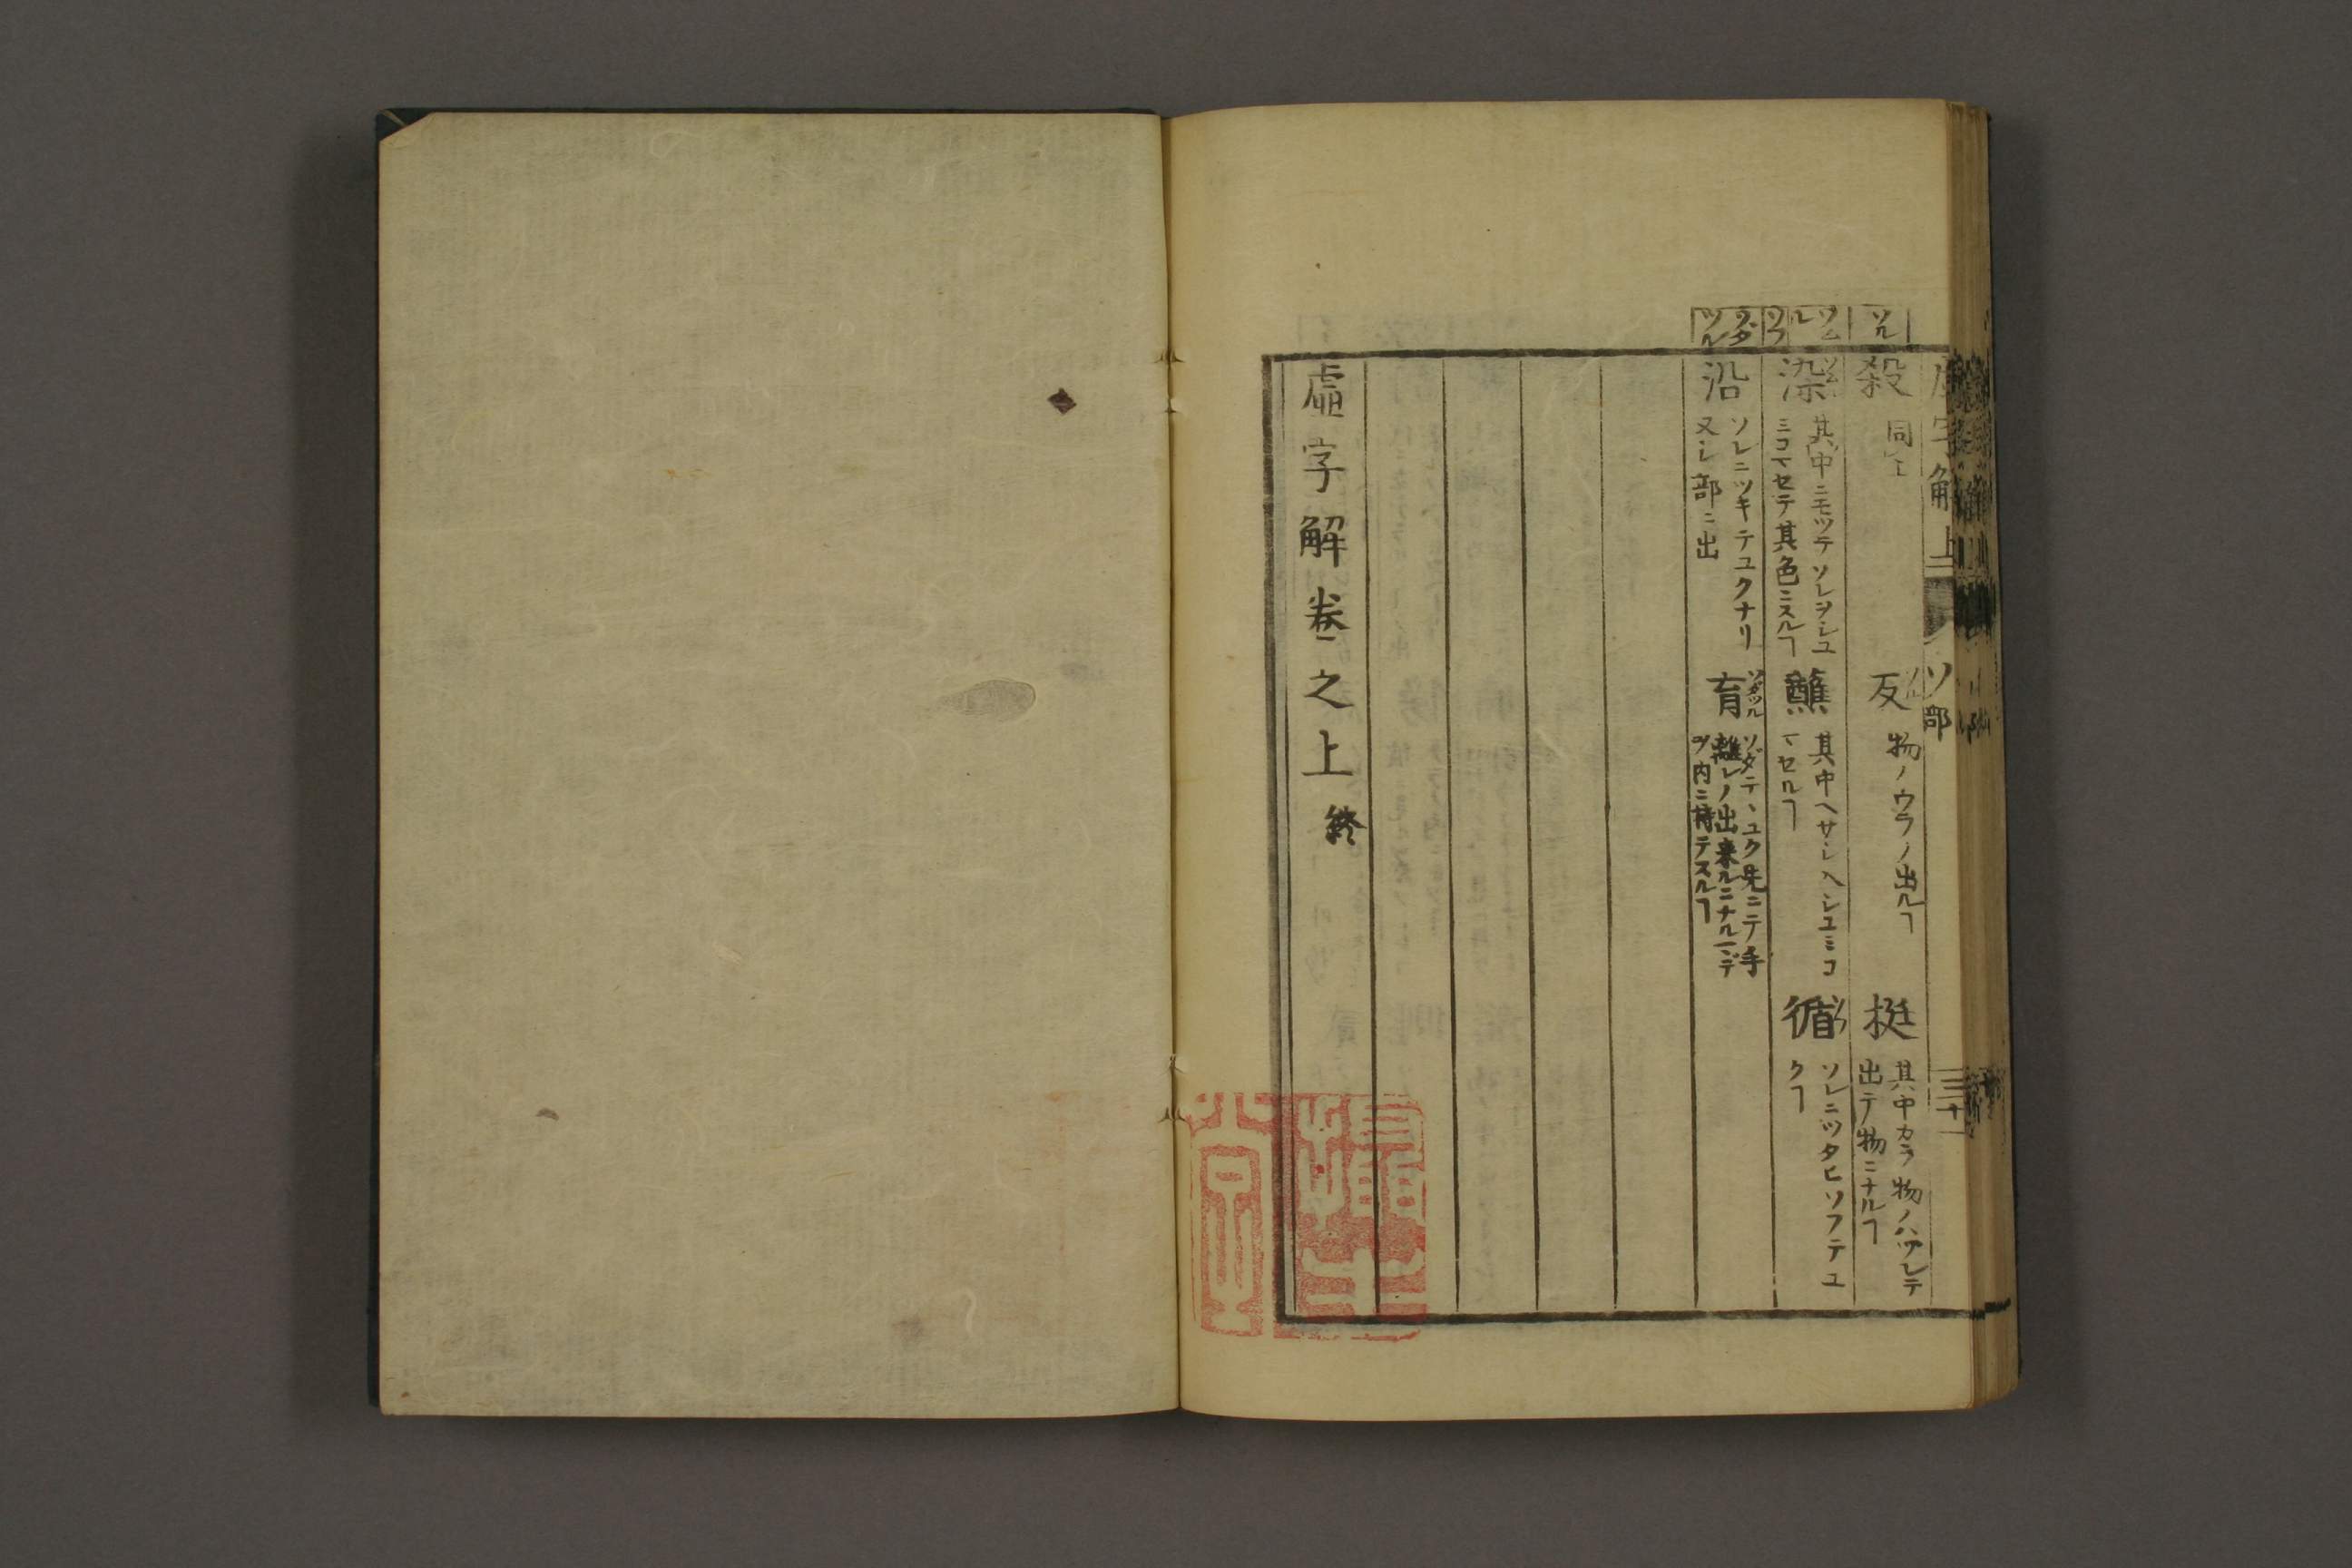 虚字解上
ソ部
三十一
ソル
ソム
ル
ソフ
ソダ
ツル
殺 同上
反 物ノウラノ出ルヿ
挺 其中カラ物ノハツレテ
出テ物ニナルヿ
染 其中ニモツテソレヲシユ
ミコマセテ其色ニスルヿ
蘸 其中ヘサシヘシユミコ
マセルヿ
循 ソフ
ソレニツタヒソフテユ
クヿ
沿 ソレニツキテユクナリ
又シ部ニ出
育 ソダツル
ソダテヽユク先ニテ手
離レノ出来ルニナルマデ
ツ内ニ持テスルヿ
虚字解巻之上 終